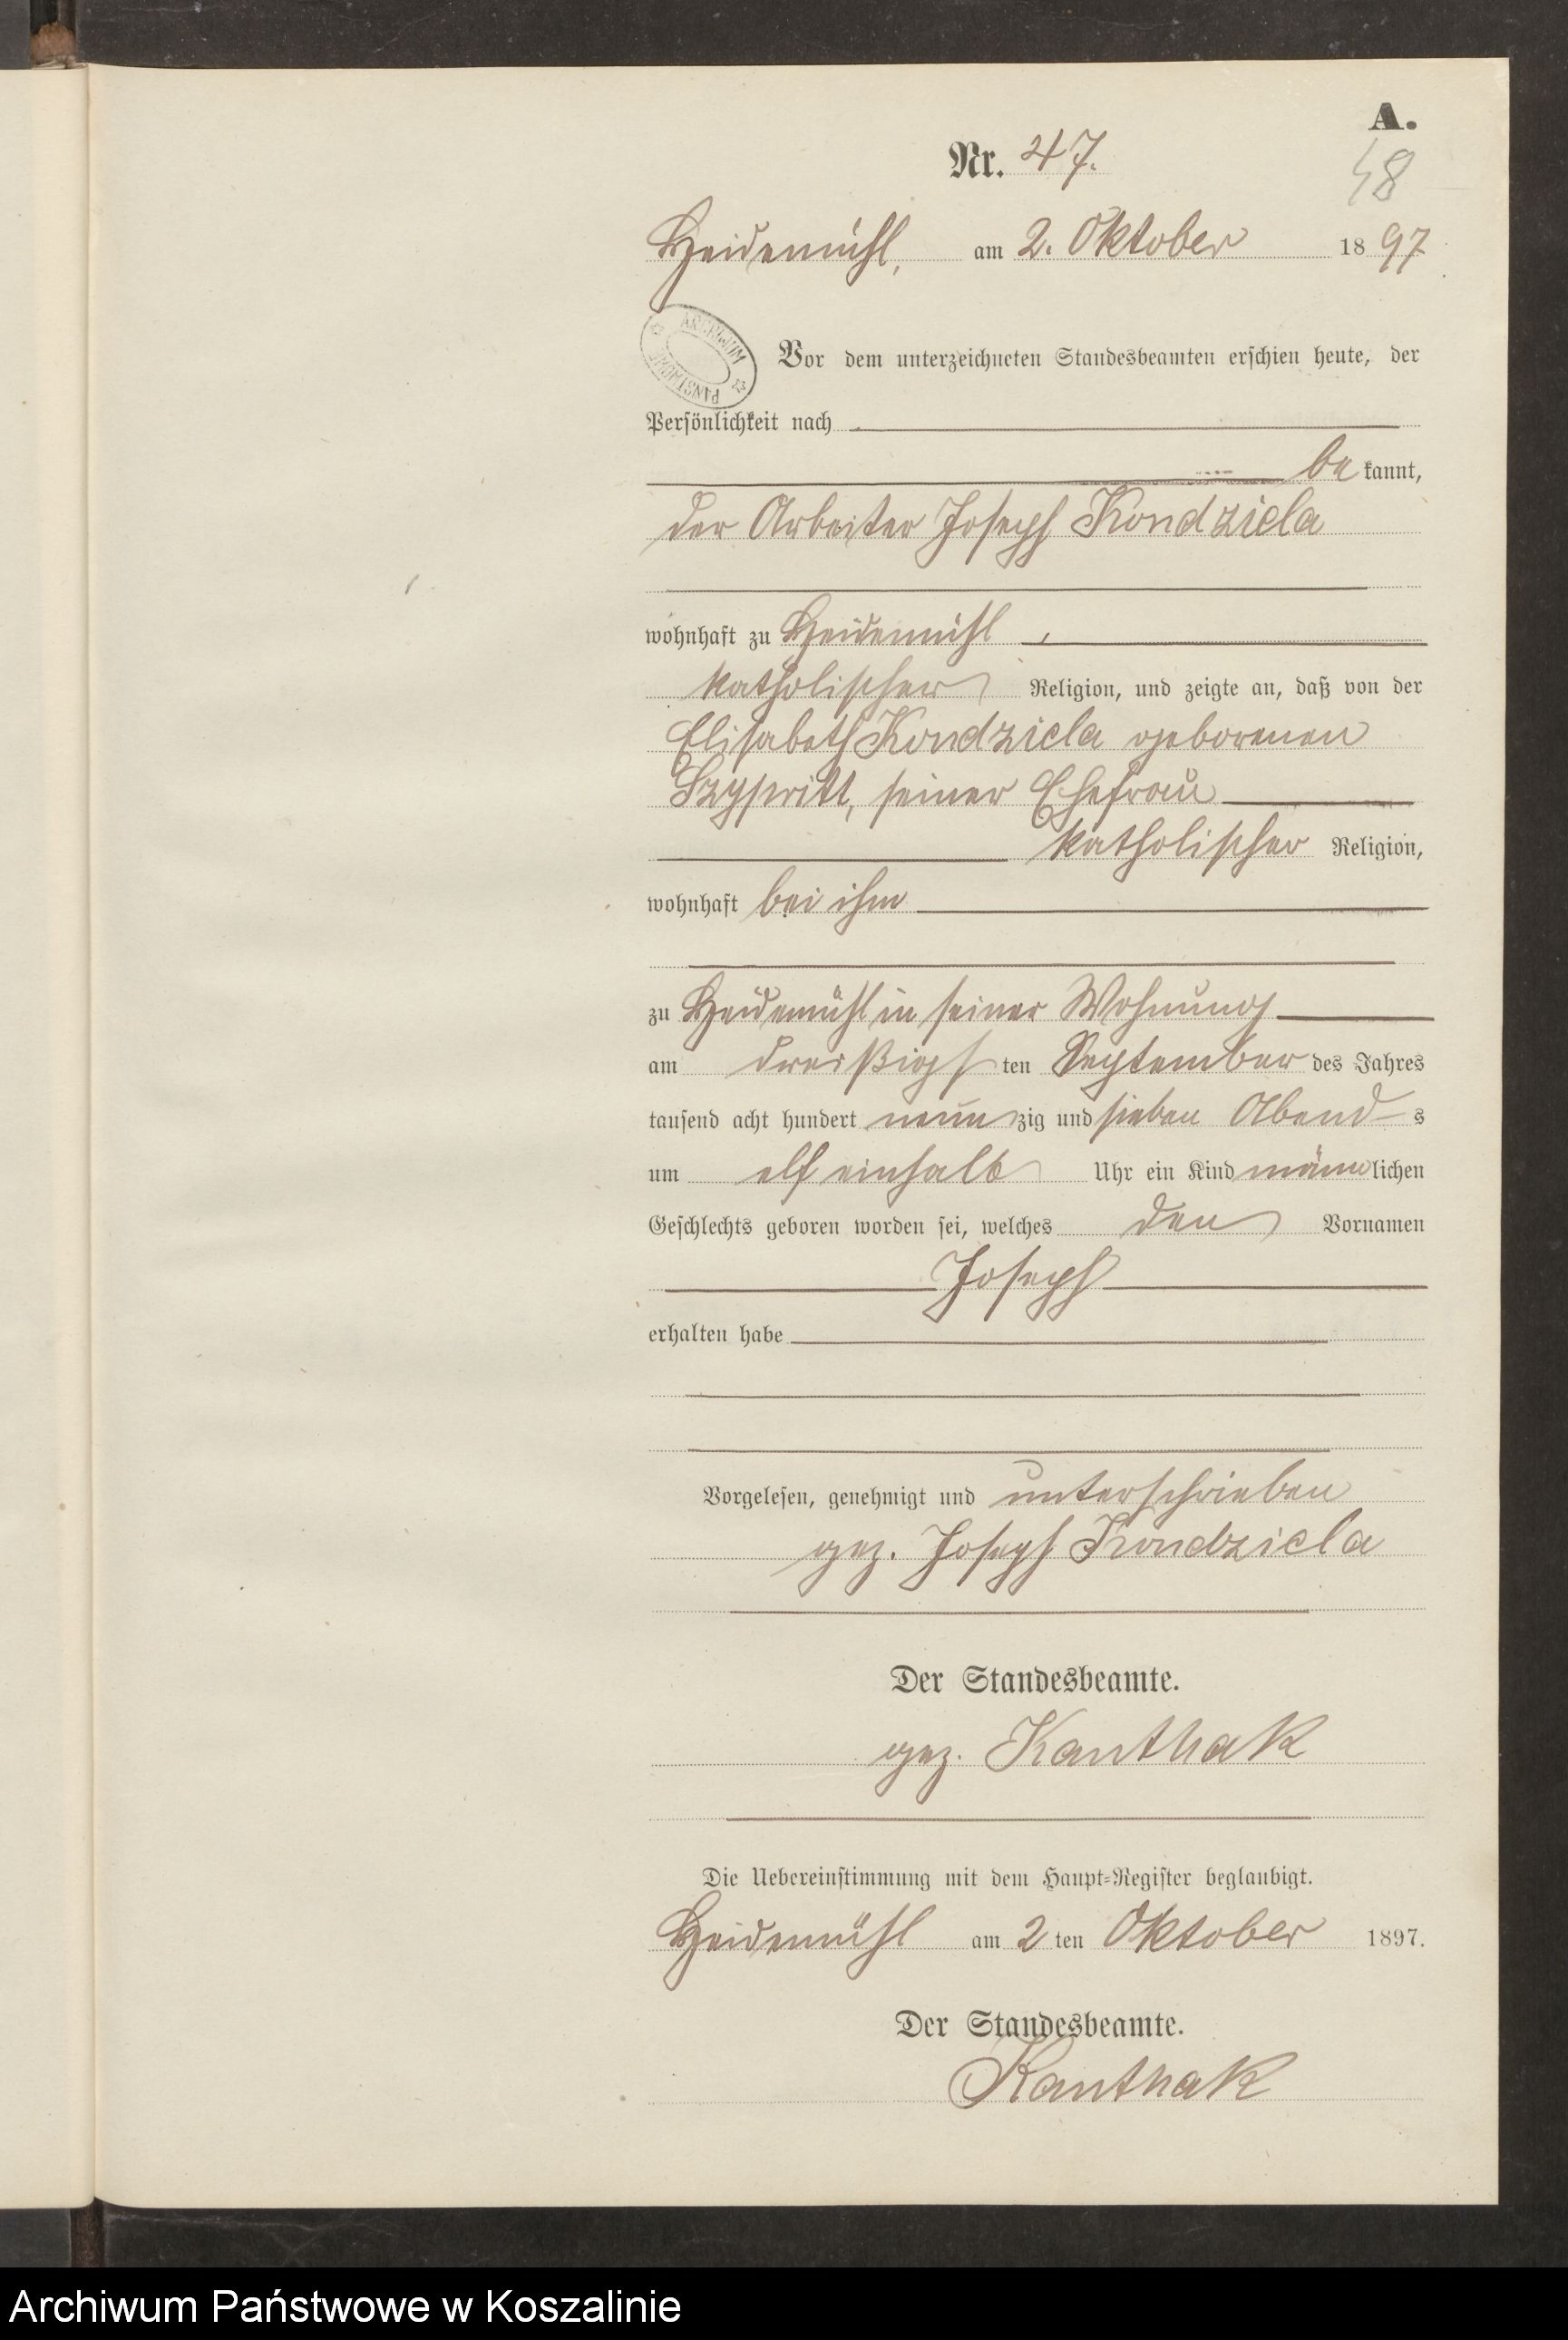 A.
Nr. 47.
48
Heidemühl, am 2. Oktober 1897
ARCHIWUM PAŃSTWOWE
Vor dem unterzeichneten Standesbeamten erschien heute, der
Persönlichkeit nach
be kannt,
der Arbeiter Joseph Kondziela
wohnhaft zu Heidemühl,
katholischer Religion, und zeigte an, daß von der
Elisabeth Kondziela geborenen
seiner Ehefrau
katholischer Religion,
wohnhaft bei ihm
zu Heidemühl in seiner Wohnung
am dreißigsten September des Jahres
tausend acht hundert neunzig und sieben Abends
um elf einhalb Uhr ein Kind männlichen
Geschlechts geboren worden sei, welches den Vornamen
Joseph
erhalten habe
Vorgelesen, genehmigt und unterschrieben
gez. Joseph Kondziela
Der Standesbeamte.
gez. Kanthak
Die Uebereinstimmung mit dem Haupt-Register beglaubigt.
Heidemühl am 2ten Oktober 1897.
Der Standesbeamte.
Kanthak
Archiwum Państwowe w Koszalinie